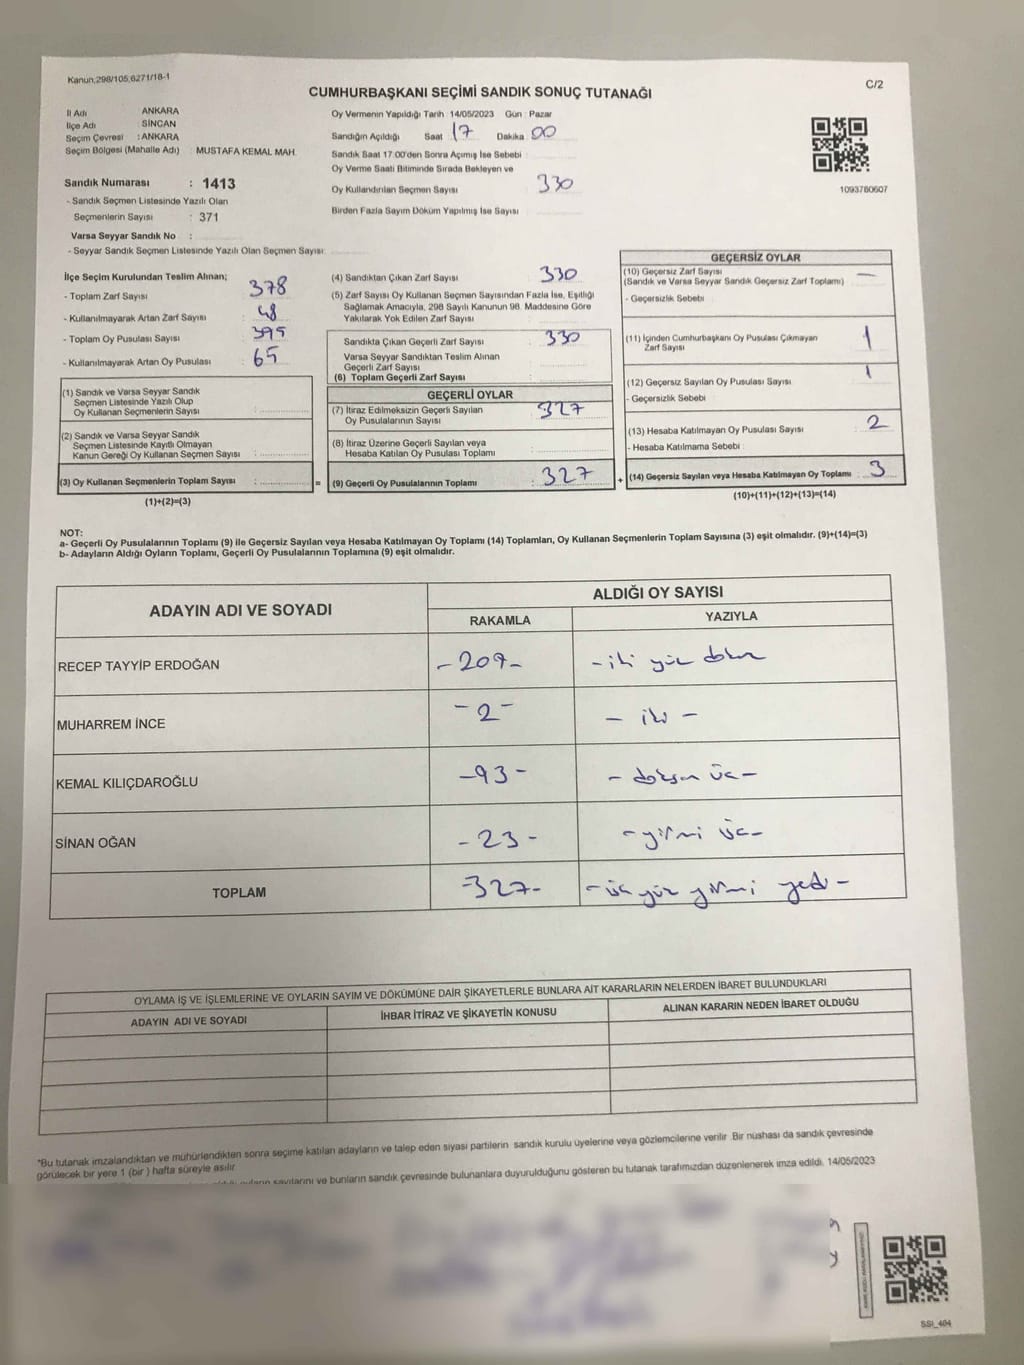 Kanun,298/105,6271/18-1
C/2
CUMHURBAŞKANI SEÇİMİ SANDIK SONUÇ TUTANAĞI
İl Adı ANKARA
İlçe Adı SİNCAN
Seçim Çevresi : ANKARA
Seçim Bölgesi (Mahalle Adı) : MUSTAFA KEMAL MAH.
Sandık Numarası : 1413
- Sandık Seçmen Listesinde Yazılı Olan
Seçmenlerin Sayısı : 371
Varsa Seyyar Sandık No :
- Seyyar Sandık Seçmen Listesinde Yazılı Olan Seçmen Sayısı:
Oy Vermenin Yapıldığı Tarih 14/05/2023 Gün : Pazar
Sandığın Açıldığı Saat 17 Dakika 00
Sandık Saat 17:00'den Sonra Açımış İse Sebebi :
Oy Verme Saati Bitiminde Sırada Bekleyen ve
Oy Kullandırılan Seçmen Sayısı 330
Birden Fazla Sayım Döküm Yapılmış İse Sayısı
1093760607
İlçe Seçim Kurulundan Teslim Alınan;
- Toplam Zarf Sayısı 378
- Kullanılmayarak Artan Zarf Sayısı : 48
- Toplam Oy Pusulası Sayısı : 395
- Kullanılmayarak Artan Oy Pusulası : 65
(1) Sandık ve Varsa Seyyar Sandık
Seçmen Listesinde Yazılı Olup
Oy Kullanan Seçmenlerin Sayısı :
(2) Sandık ve Varsa Seyyar Sandık
Seçmen Listesinde Kayıtlı Olmayan
Kanun Gereği Oy Kullanan Seçmen Sayısı :
(3) Oy Kullanan Seçmenlerin Toplam Sayısı : =
(1)+(2)=(3)
(4) Sandıktan Çıkan Zarf Sayısı : 330
(5) Zarf Sayısı Oy Kullanan Seçmen Sayısından Fazla İse, Eşitliği
Sağlamak Amacıyla, 298 Sayılı Kanunun 98. Maddesine Göre
Yakılarak Yok Edilen Zarf Sayısı :
Sandıkta Çıkan Geçerli Zarf Sayısı : 330
Varsa Seyyar Sandıktan Teslim Alınan
Geçerli Zarf Sayısı :
(6) Toplam Geçerli Zarf Sayısı :
GEÇERLİ OYLAR
(7) İtiraz Edilmeksizin Geçerli Sayılan
Oy Pusulalarının Sayısı : 327
(8) İtiraz Üzerine Geçerli Sayılan veya
Hesaba Katılan Oy Pusulası Toplamı :
(9) Geçerli Oy Pusulalarının Toplamı : 327 +
GEÇERSİZ OYLAR
(10) Geçersiz Zarf Sayısı —
(Sandık ve Varsa Seyyar Sandık Geçersiz Zarf Toplamı)
- Geçersizlik Sebebi
(11) İçinden Cumhurbaşkanı Oy Pusulası Çıkmayan
Zarf Sayısı 1
(12) Geçersiz Sayılan Oy Pusulası Sayısı 1
- Geçersizlik Sebebi
(13) Hesaba Katılmayan Oy Pusulası Sayısı 2
- Hesaba Katılmama Sebebi :
(14) Geçersiz Sayılan veya Hesaba Katılmayan Oy Toplamı : 3
(10)+(11)+(12)+(13)=(14)
NOT:
a- Geçerli Oy Pusulalarının Toplamı (9) ile Geçersiz Sayılan veya Hesaba Katılmayan Oy Toplamı (14) Toplamları, Oy Kullanan Seçmenlerin Toplam Sayısına (3) eşit olmalıdır. (9)+(14)=(3)
b- Adayların Aldığı Oyların Toplamı, Geçerli Oy Pusulalarının Toplamına (9) eşit olmalıdır.
ADAYIN ADI VE SOYADI
ALDIĞI OY SAYISI
RAKAMLA YAZIYLA
RECEP TAYYİP ERDOĞAN -209- - iki yüz dokuz
MUHARREM İNCE -2- - iki -
KEMAL KILIÇDAROĞLU -93- - doksan üç -
SİNAN OĞAN -23- - yirmi üç -
TOPLAM -327- - üç yüz yirmi yedi -
OYLAMA İŞ VE İŞLEMLERİNE VE OYLARIN SAYIM VE DÖKÜMÜNE DAİR ŞİKAYETLERLE BUNLARA AİT KARARLARIN NELERDEN İBARET BULUNDUKLARI
ADAYIN ADI VE SOYADI İHBAR İTİRAZ VE ŞİKAYETİN KONUSU ALINAN KARARIN NEDEN İBARET OLDUĞU
*Bu tutanak imzalandıktan ve mühürlendikten sonra seçime katılan adayların ve talep eden siyasi partilerin sandık kurulu üyelerine veya gözlemcilerine verilir. Bir nüshası da sandık çevresinde
görülecek bir yere 1 (bir ) hafta süreyle asılır.
sayılarını ve bunların sandık çevresinde bulunanlara duyurulduğunu gösteren bu tutanak tarafımızdan düzenlenerek imza edildi. 14/05/2023
SSI_404